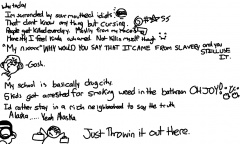 why today
I'm surrounded by sewer mouthed idiots.
That dont know any thing but cursing. #$*55
People get killed everyday. Mostly from my
Honestly I feel kinda ashamed. Not Killa myself though
"My n" WHY WOULD YOU SAY THAT IT CAME FROM SLAVERY and you STILL USE IT.
-Gosh.
My school is basically drug city
5 kids got arrested for smoking weed in the bathroom OH JOY!
Id rather stay in a rich neighborhood to say the truth
Alaska..... Yeah Alaska
Just Throwin it out there.